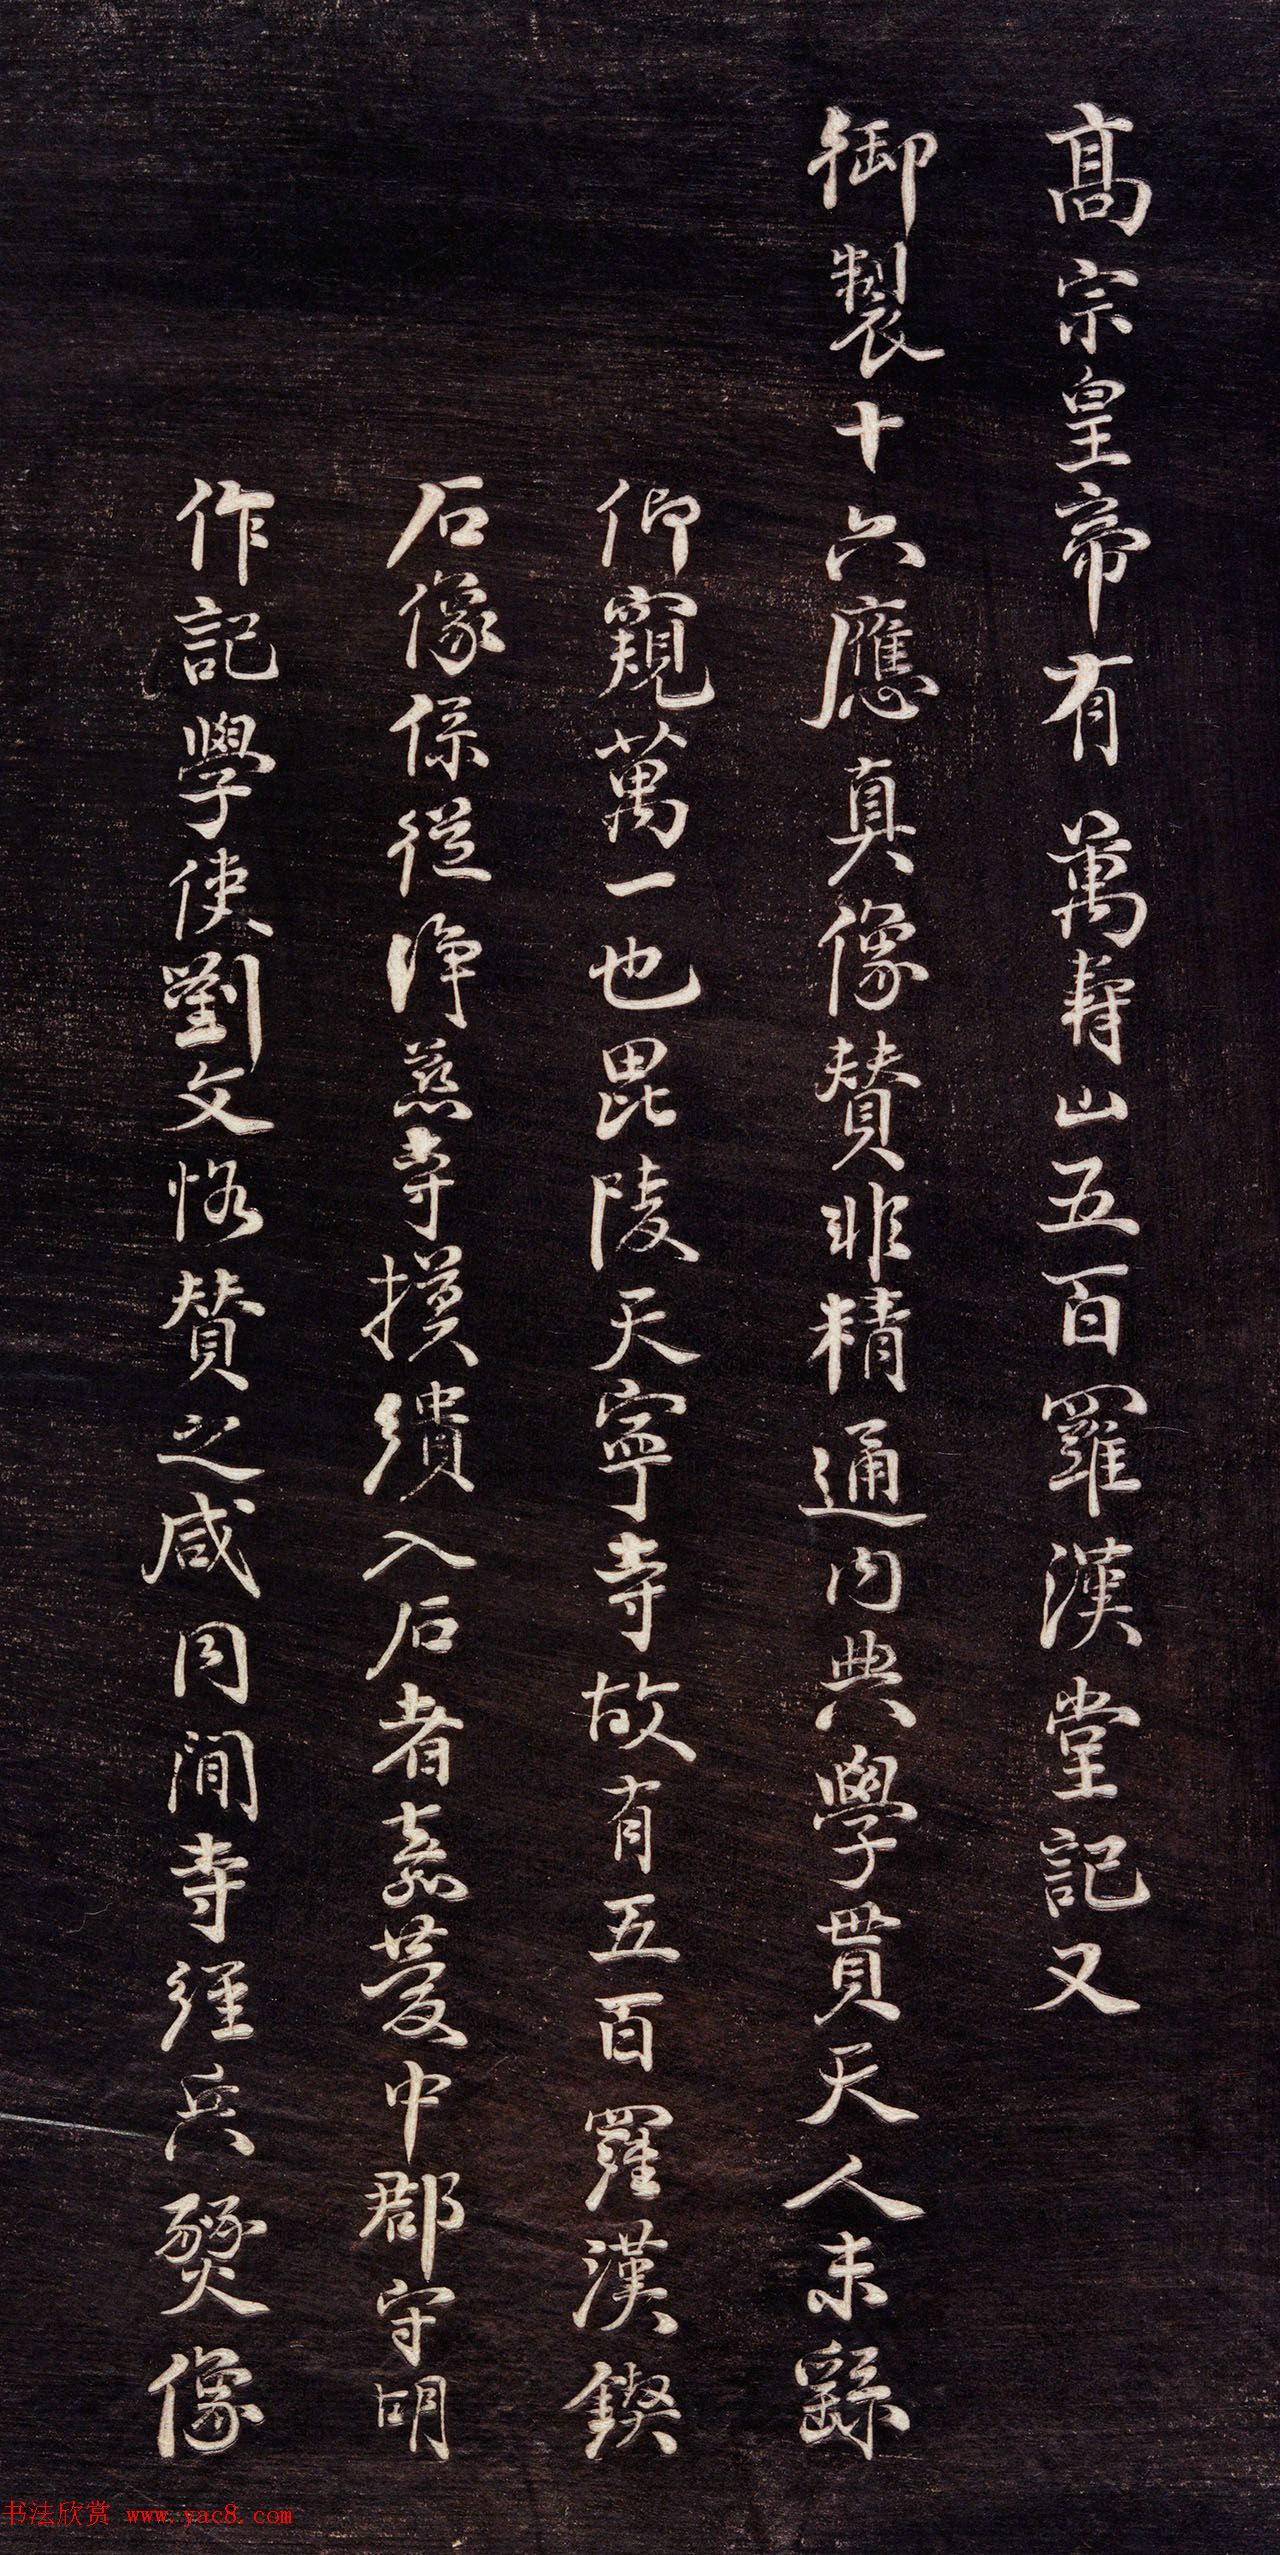 高宗皇帝有萬壽山五百羅漢堂記又
御製十六應真像贊非精通內典學貫天人未繇
仰窺萬一也毘陵天寧寺故有五百羅漢鍥
石像係從淨慈寺摸繢入石者嘉慶中郡守胡
作記學使劉文恪贊之咸同間寺經兵燹像
书法欣赏 www.yac8.com